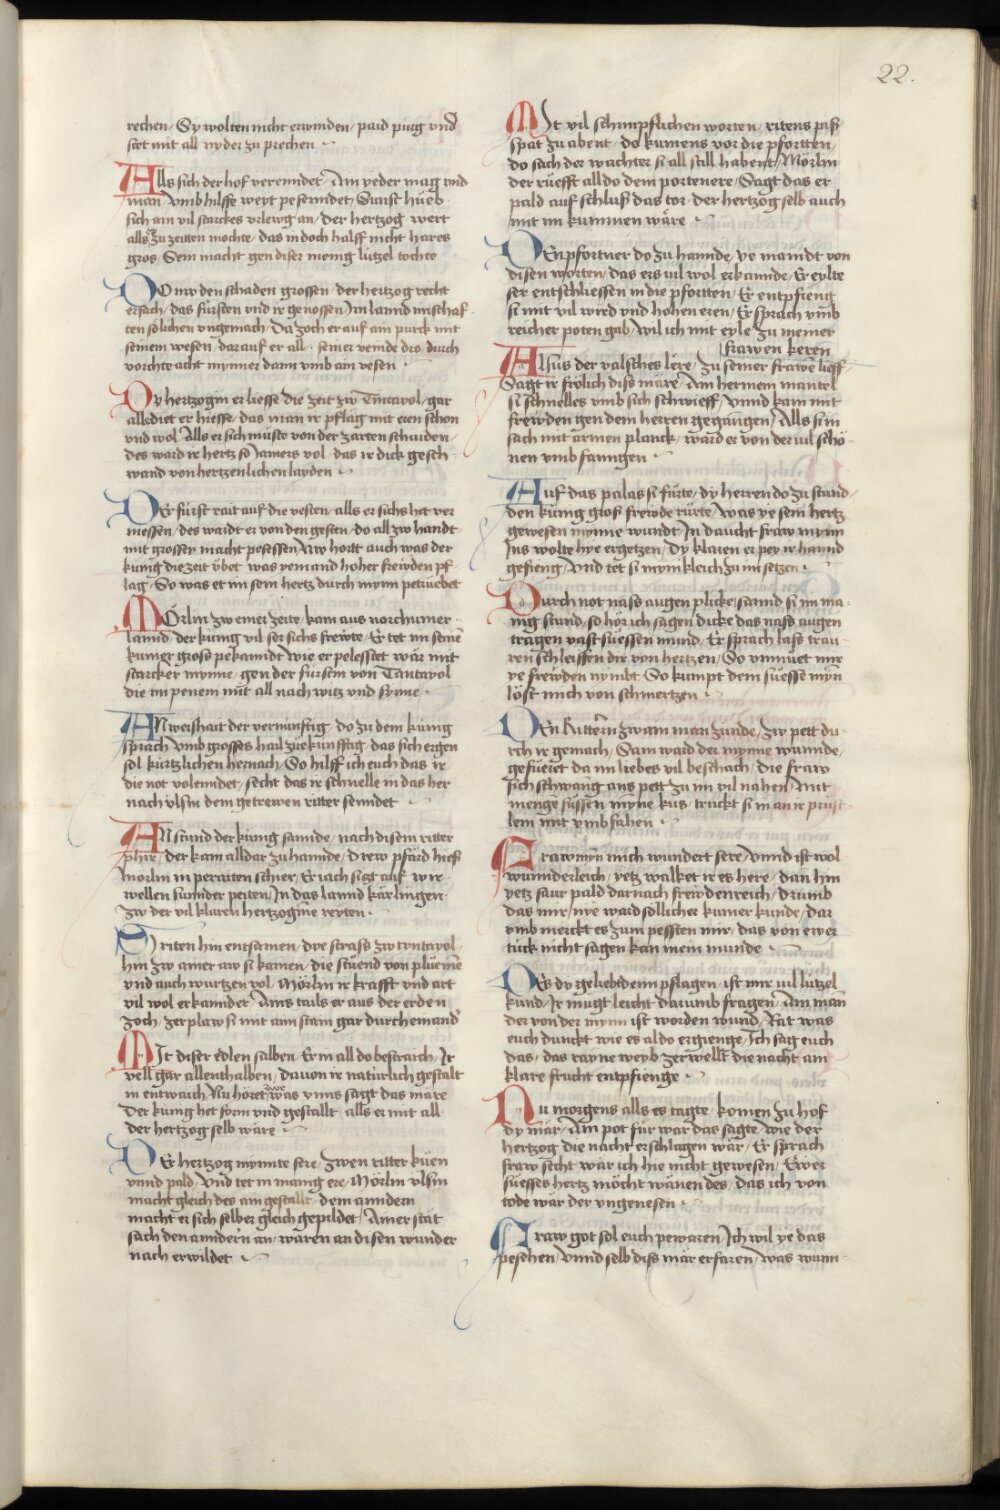 22.
rechen / Sy wolten nicht erwinden / paid purg vnd
stet mit all nyder zu prechen
Alls sich der hof verenndet / Am yeder mag vnd
man / vmb hilffe weyt pesenndet / Sunst hueb
sich ain vil starckes vrlewg an / der hertzog wert
alls zu zeitten mochte / das in doch halff nicht hares
gros / Sein macht gen diser menig lützel tochte
DO nw den schaden grossen / der hertzog recht
ersach / das fürsten vnd ir genossen / Im lannd im schaf
ten sölichen vngemach / Da zoch er auf ain purck mit
seinem wesen / darauf er all seiner veinde dro / durch
vorchte acht mynner dann vmb ain vesen
Dy hertzogin er liesse die zeit zw Tintavol / gar
alle diet er hiesse / das man ir pflag mit eren schon
vnd wol / Alls er sich müste von der zarten schaiden /
des ward ir hertz so Jamers vol / das ir dick gesch
wand von hertzenlichen layden
DEr fürst rait auf die vesten / alls er sichs het ver
messen / des wardt er von den gesten / do all zw handt
mit grosser macht pesessen / Nw hortt auch was der
kunig die zeit übet / was yemand hoher frewden pf
lag / So was et im sein hertz durch mynn petruebet
MÖrlin zw einer zeite / kam aus norchumer
lannd / der kunig vil ser sichs frewte / Er tet im seine
kumer gross pekanndt / wie er pelesstet wär mit
starcker mynne / gen der fürstin von Tantayol
die im penem mit all nach witz vnd synne
AIn weishait der vernunftig / do zu dem kunig
sprach / vmb grosses hail zuekunfftig / das sich ergen
sol kurtzlichen hernach / So hilff ich euch das ir
die not volenndet / secht das ir schnelle in das her
nach vlsin dem getrewen ritter senndet
AN stund der kunig sannde / nach disem ritter
phir / der kam alldar zu hannde / drew pfärd hies
mörlin in peraitten schier / Er iach sitzt auf wir
wellen sunder peiten / In das lannd kärlingen
zw der vil klaren hertzogine reyten
SY riten hin entsamen / dye strass zw tyntayol
hin zw ainer aw si kamen / die stuend von pluemen
vnd auch wurtzen vol / Mörlin ir krafft vnd art
vil wol erkannder / Ains tails er aus der erden
zoch / zerplaw si mit aim stain gar durch einand
MIt diser edlen salben / Er in all do bestraich / Ir
vell gar allenthalben / davon ir natürlich gestalt
in entwaich / Nu höret zwe was vnns sagt das märe
Der kunig het form vnd gestallt alls er mit all
der hertzog selb wäre
DEr hertzog mynnte sere / zwen ritter küen
vnnd pald / vnd tet in manig ere / Mörlin vlsin
macht gleich des ain gestallt / dem anndern
macht er sich selber gleich gepildet / Ainer stat
sach den anndern an / waren an disen wunder
nach erwildet
MIt vil schimpflichen worten / ritens pas
spat zu abent / do kumens vor die pfortten /
do sach der wachter si all still habent / Mörlin
der rüefft all do dem portenere / Sagt das er
pald auf schlus das tor / der hertzog selb auch
mit im kummen wäre
DEn pfortner do zu hannde / ye maindt von
disen worten / das ers vil wol erkannde / Er eylte
ser entschliessen in die pfortten / Er entpfieng
si mit vil wird vnd hohen eren / Er sprach vmb
reicher poten gab / wil ich mit eyle zu meiner
frawen keren
ALsus der valsches lere / zu seiner frawe lieff
Sagt ir frölich diss märe / Am hermein mantel
si schnelles vmb sich schwieff / vnnd kam mit
frewden gen dem herren gegangen / Alls si in
sach mit armen planck / ward er von der vil schö
nen vmb fanngen
AUf das palas si fürte / dy herren do zu stund /
den kunig gros frewde rürte / was ye sein hertz
gewesen mynne wundt / In daucht fraw mynn
Ins wolte hye ergetzen / dy klaren er pey ir hannd
gefieng / vnd tet si mynikleich zu im setzen
DUrch not nass augen plicke / sannd si im ma
nig stund / so hör ich sagen dicke das nass augen
tragen vast suessen mund / Er sprach lass trau
ren schleiffen dir von hertzen / So vnmuet mir
ye frewden nymbt / So kumpt dein suesse myn
löst mich von schmertzen
DEn Rittern zwain man zunde / zw pett du
rch ir gemach / Sam waid der mynne wunnde /
gefüeret da im liebes vil beschach / die fraw
sich schwang ans pett zu im vil nahen / mit
menge süssen myne kus / truckt si in an ir prüst
lem mit vmbfahen
FRaw mÿn mich wundert sere / vnnd ist wol
wunnderleich / yetz walket ir es here / dan hin
yetz saur pald darnach frewdenreich / drumb
das mir / nye waid söllicher kumer kunde / dar
vmb merckt es zum pessten mir / das von ewer
tück nicht sagen kan mein munde
DEs dy geliebt denn pflagen / ist mir vil lützel
kund / Ir mügt leicht darumb fragen / Ain man
der von der mynn ist worden wund / Rat was
euch dunckt wie es al do ergienge / Ich sag euch
das / das rayne weyb zerwellt die nacht ain
klare frucht entpfienge
NU morgens alls es tagte / komen zu hof
dy mär / Ain pot für war das sagte / wie der
hertzog die nacht erschlagen wär / Er sprach
fraw secht wär ich hie nicht gewesen / Ewer
suesses hertz möcht wänen des / das ich von
tode wär der vngenesen
FRaw got sol euch pewaren / Ich wil ye das
pesehen / vnnd selb diss mär erfaren / was wunn